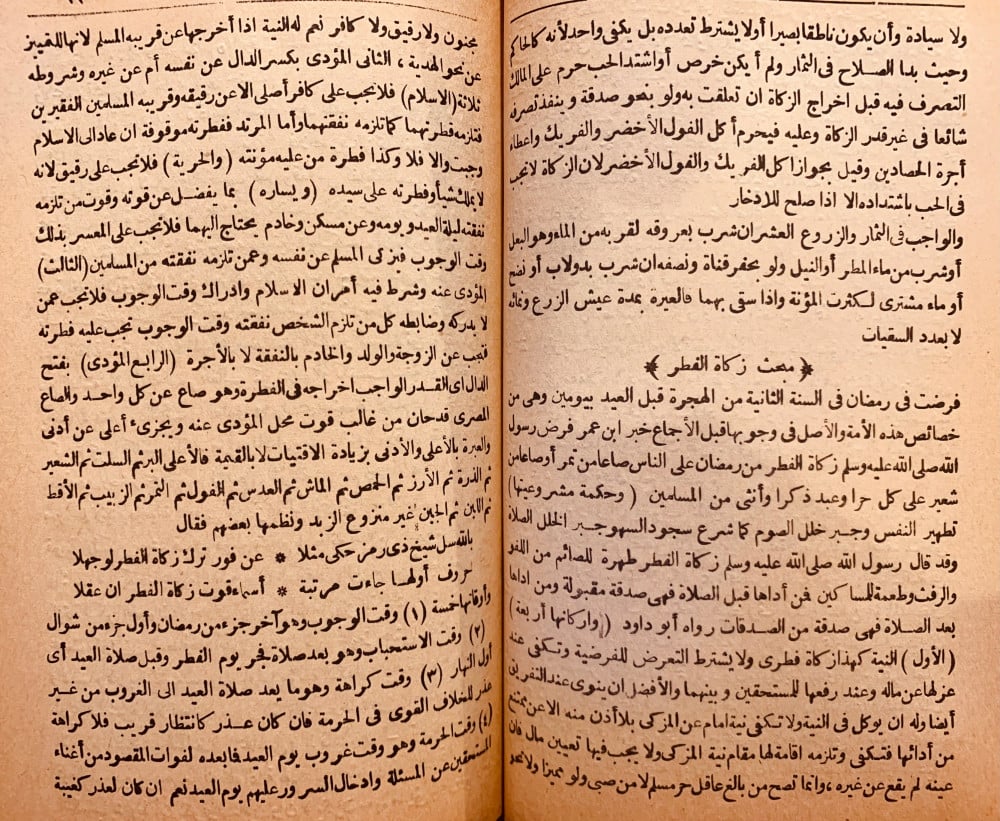 ولا سيادة وأن يكون ناطقا بصيرا أولا يشترط تعدده بل يكفى واحد لأنه كالحاكم
وحيث بدا الصلاح فى الثمار ولم أيكن خرص أو اشتد الحب حرم على المالك
التصرف فيه قبل اخراج الزكاة ان تعلقت به ولو بنحو صدقة وينفذ تصرفه
شائعا فى غير قدر الزكاة وعليه فيحرم أكل الفول الأخضر والفريك واعطاء
أجرة الحصادين وقيل بجواز اكل الفريك والفول الأخضر لان الزكاة لا تجب
فى الحب باشتداده الا اذا صلح للادخار
والواجب فى الثمار والزروع العشر ان شرب بعروقه لقربه من الماء وهو البعل
أو شرب من ماء المطر أو النيل ولو بحفر قناة ونصفه ان شرب بدولاب أو نضح
أو ماء مشترى لكثرت المؤنة واذا سقى بهما فالعبرة بمدة عيش الزرع ونمائه
لا بعدد السقيات
﴿ مبحث زكاة الفطر ﴾
فرضت فى رمضان فى السنة الثانية من الهجرة قبل العيد بيومين وهى من
خصائص هذه الأمة والأصل فى وجوبها قبل الأجماع خبر ابن عمر فرض رسول
الله صلى الله عليه وسلم زكاة الفطر من رمضان على الناس صاعا من تمر أو صاعا من
شعير على كل حر أو عبد ذكر أو أنثى من المسلمين (وحكمة مشروعيتها)
تطهير النفس وجبر خلل الصوم كما شرع سجود السهو جبر الخلل الصلاة
وقد قال رسول الله صلى الله عليه وسلم زكاة الفطر طهرة للصائم من اللغو
والرفث وطعمة للمساكين فمن أداها قبل الصلاة فهى صدقة مقبولة ومن اداها
بعد الصلاة فهى صدقة من الصدقات رواه أبو داود (واركانها أربعة)
(الأول) النية كهذا زكاة فطرى ولا يشترط التعرض للفرضية وتكفى عند
عزلها عن ماله وعند رفعها للمستحقين وبينهما والأفضل ان ينوى عند التفريق
أيضا وله ان يوكل فى النية ولا تكفى نية امام عن المزكى بلا أذن منه الا عن ممتنع
من أدائها فتكفى وتلزمه اقامة لها مقام نية المزكى ولا يجب فيها تعيين مال فان
عينه لم يقع عن غيره ، وانما تصح من بالغ عاقل حر مسلم لا من صبى ولو مميزا ولا نحو
مجنون ولا رقيق ولا كافر نعم له النية اذا أخرجها عن قريبه المسلم لانها للتمييز
عن نحو الهدية ، الثانى المؤدى بكسر الدال عن نفسه أم عن غيره وشروطه
ثلاثة (الاسلام) فلا تجب على كافر أصلى الا عن رقيقه وقريبه المسلمين الفقيرين
فتلزمه فطرتهما كما تلزمه نفقتهما وأما المرتد ففطرته موقوفة ان عاد الى الاسلام
وجبت والا فلا وكذا فطرة من عليه مؤنته (والحرية) فلا تجب على رقيق لانه
لا يملك شيأ وفطرته على سيده (ويساره) بما يفضل عن قوته وقوت من تلزمه
نفقته ليلة العيد ويومه وعن مسكن وخادم يحتاج اليهما فلا تجب على المعسر بذلك
وقت الوجوب فيزكى المسلم عن نفسه وعمن تلزمه نفقته من المسلمين (الثالث)
المؤدى عنه وشرط فيه أمران الاسلام وادراك وقت الوجوب فلا تجب عمن
لا يدركه وضابطه كل من تلزم الشخص نفقته وقت الوجوب تجب عليه فطرته
فتجب عن الزوجة والولد والخادم بالنفقة لا بالأجرة (الرابع المؤدى) بفتح
الدال اى القدر الواجب اخراجه فى الفطرة وهو صاع عن كل واحد والصاع
المصرى قدحان من غالب قوت محل المؤدى عنه ويجزىء أعلى عن أدنى
والعبرة بالأعلى والأدنى بزيادة الاقتيات لا بالقيمة فالأعلى البر ثم السلت ثم الشعير
ثم الذرة ثم الأرز ثم الحمص ثم الماش ثم العدس ثم الفول ثم التمر ثم الزبيب ثم الأقط
ثم اللبن ثم الجبن غير منزوع الزبد ونظمها بعضهم فقال
بالله سل شيخ ذى رمز حكى مثلا * عن فور ترك زكاة الفطر لو جهلا
حروف أولها جاءت مرتبة * أسماء قوت زكاة الفطر ان عقلا
وأوقاتها خمسة (١) وقت الوجوب وهو آخر جزء من رمضان وأول جزء من شوال
(٢) وقت الاستحباب وهو بعد صلاة فجر يوم الفطر وقبل صلاة العيد أى
أول النهار (٣) وقت كراهة وهو ما بعد صلاة العيد الى الغروب من غير
عذر للخلاف القوى فى الحرمة فان كان عذر كانتظار قريب فلا كراهة
(٤) وقت الحرمة وهو وقت غروب يوم العيد فما بعده لفوات المقصود من أغناء
المستحقين عن المسئلة وادخال السرور عليهم يوم العيد نعم ان كان لعذر كغيبة